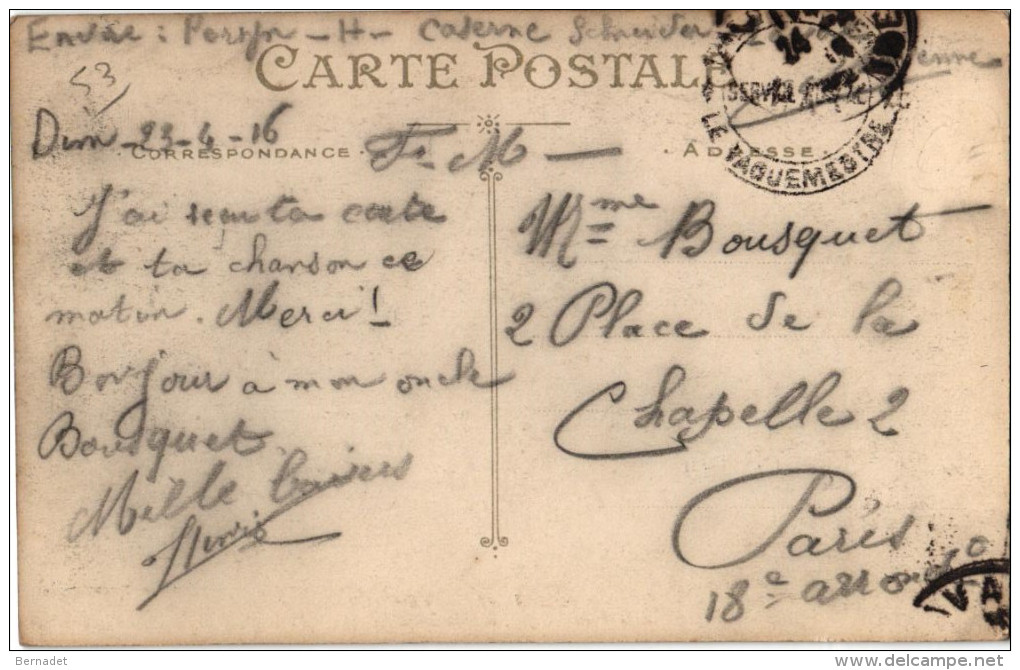 Caserne Schneider
CARTE POSTALE
53
Dim 23-4-16
CORRESPONDANCE
F. M
ADRESSE
J'ai reçu ta carte
et ta chanson ce
matin. Merci!
Bonjour à mon oncle
Bousquet
Mille baisers
Henri
Mme Bousquet
2 Place de la
Chapelle 2
Paris
18e arrond
LE VAGUEMESTRE
24
Bernadet
delcampe.net